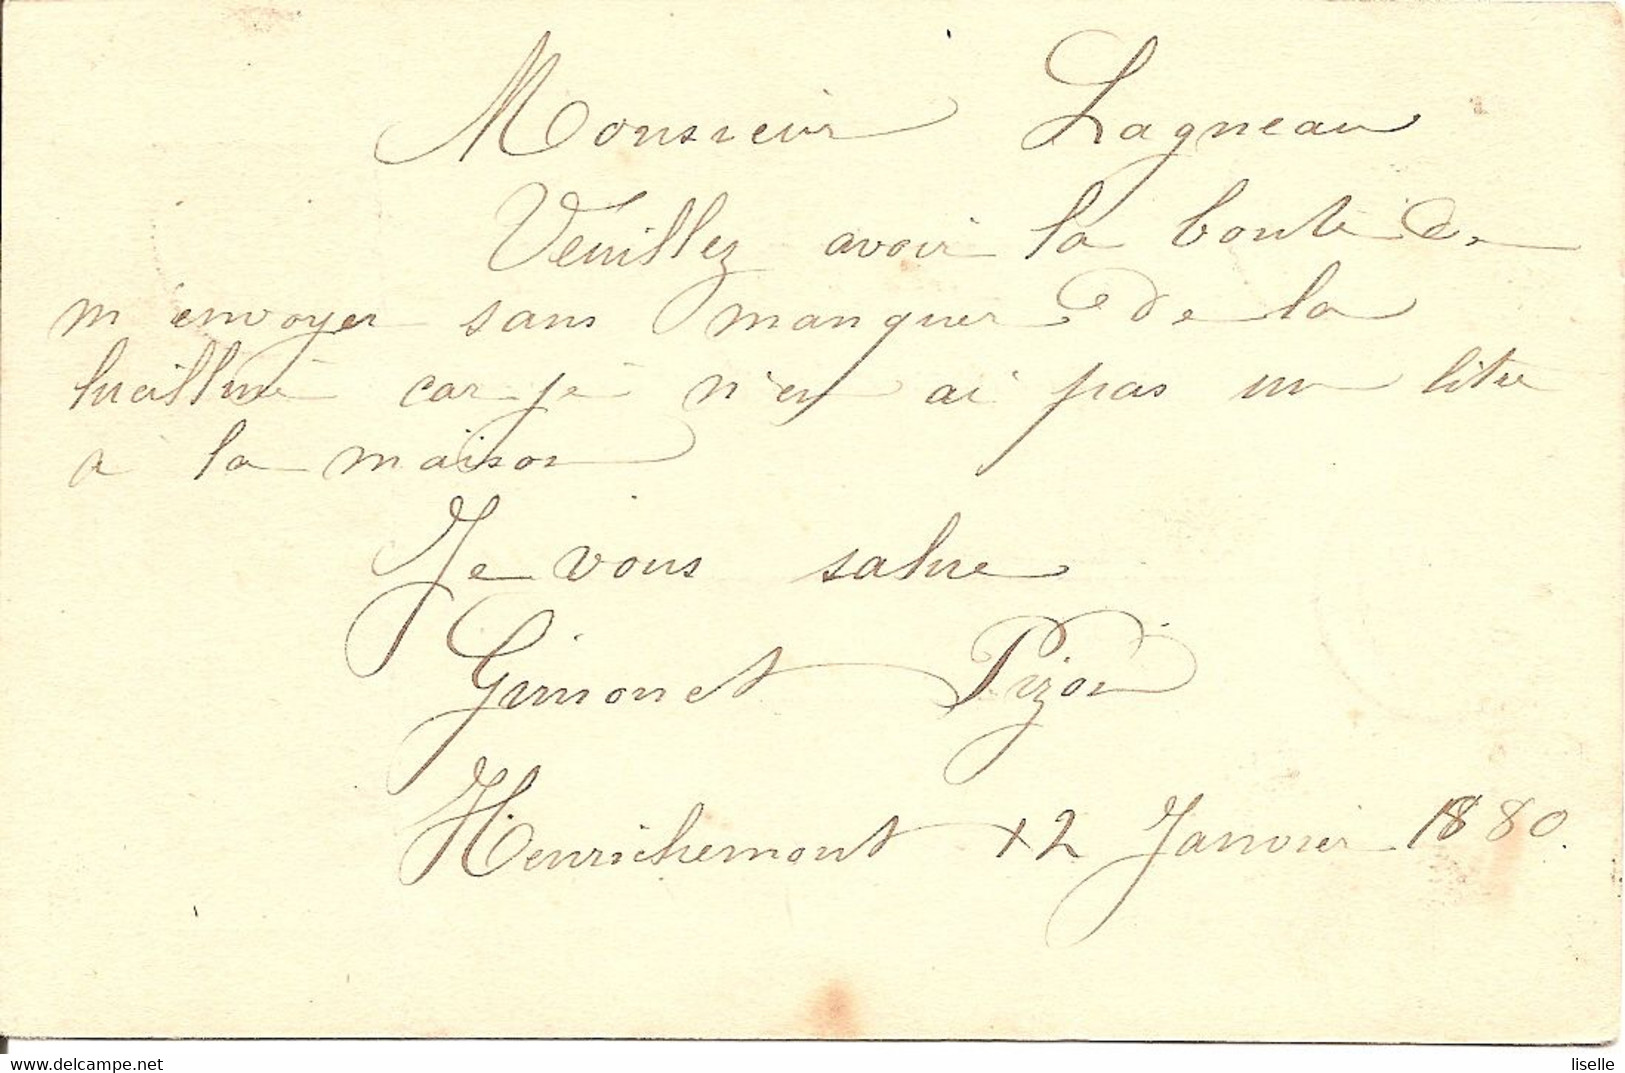 Monsieur Lagneau
Veuillez avoir la bonté de
m'envoyer sans manquer de la
luciline car je n'en ai pas un litre
a la maison
Je vous salue
Gimonet Pizon
Henrichemont 12 Janvier 1880.
liselle